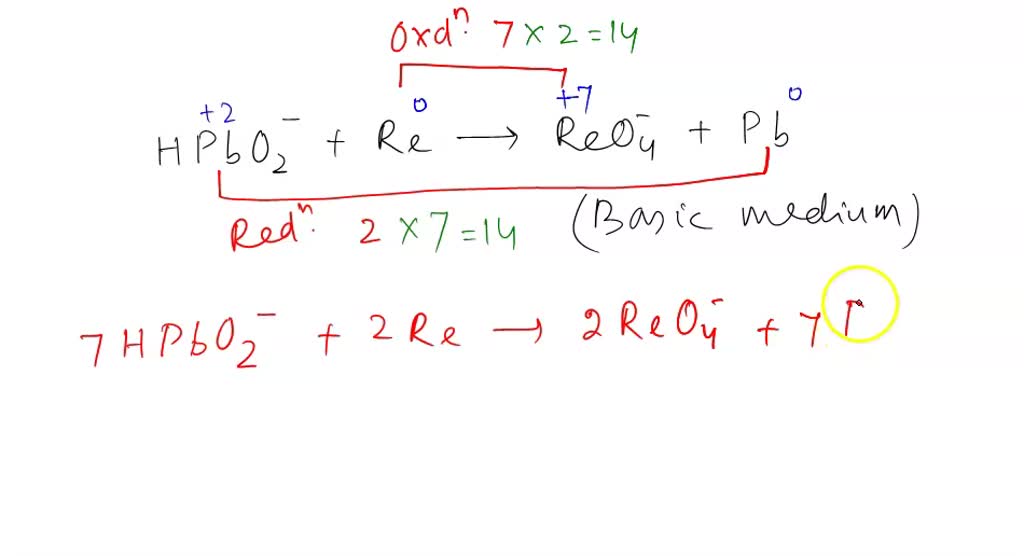 Oxdⁿ. 7 × 2 = 14
+2 0 +7 0
HPbO₂⁻ + Re ⟶ ReO₄⁻ + Pb
Redⁿ. 2 × 7 = 14 (Basic medium)
7HPbO₂⁻ + 2Re → 2ReO₄⁻ + 7